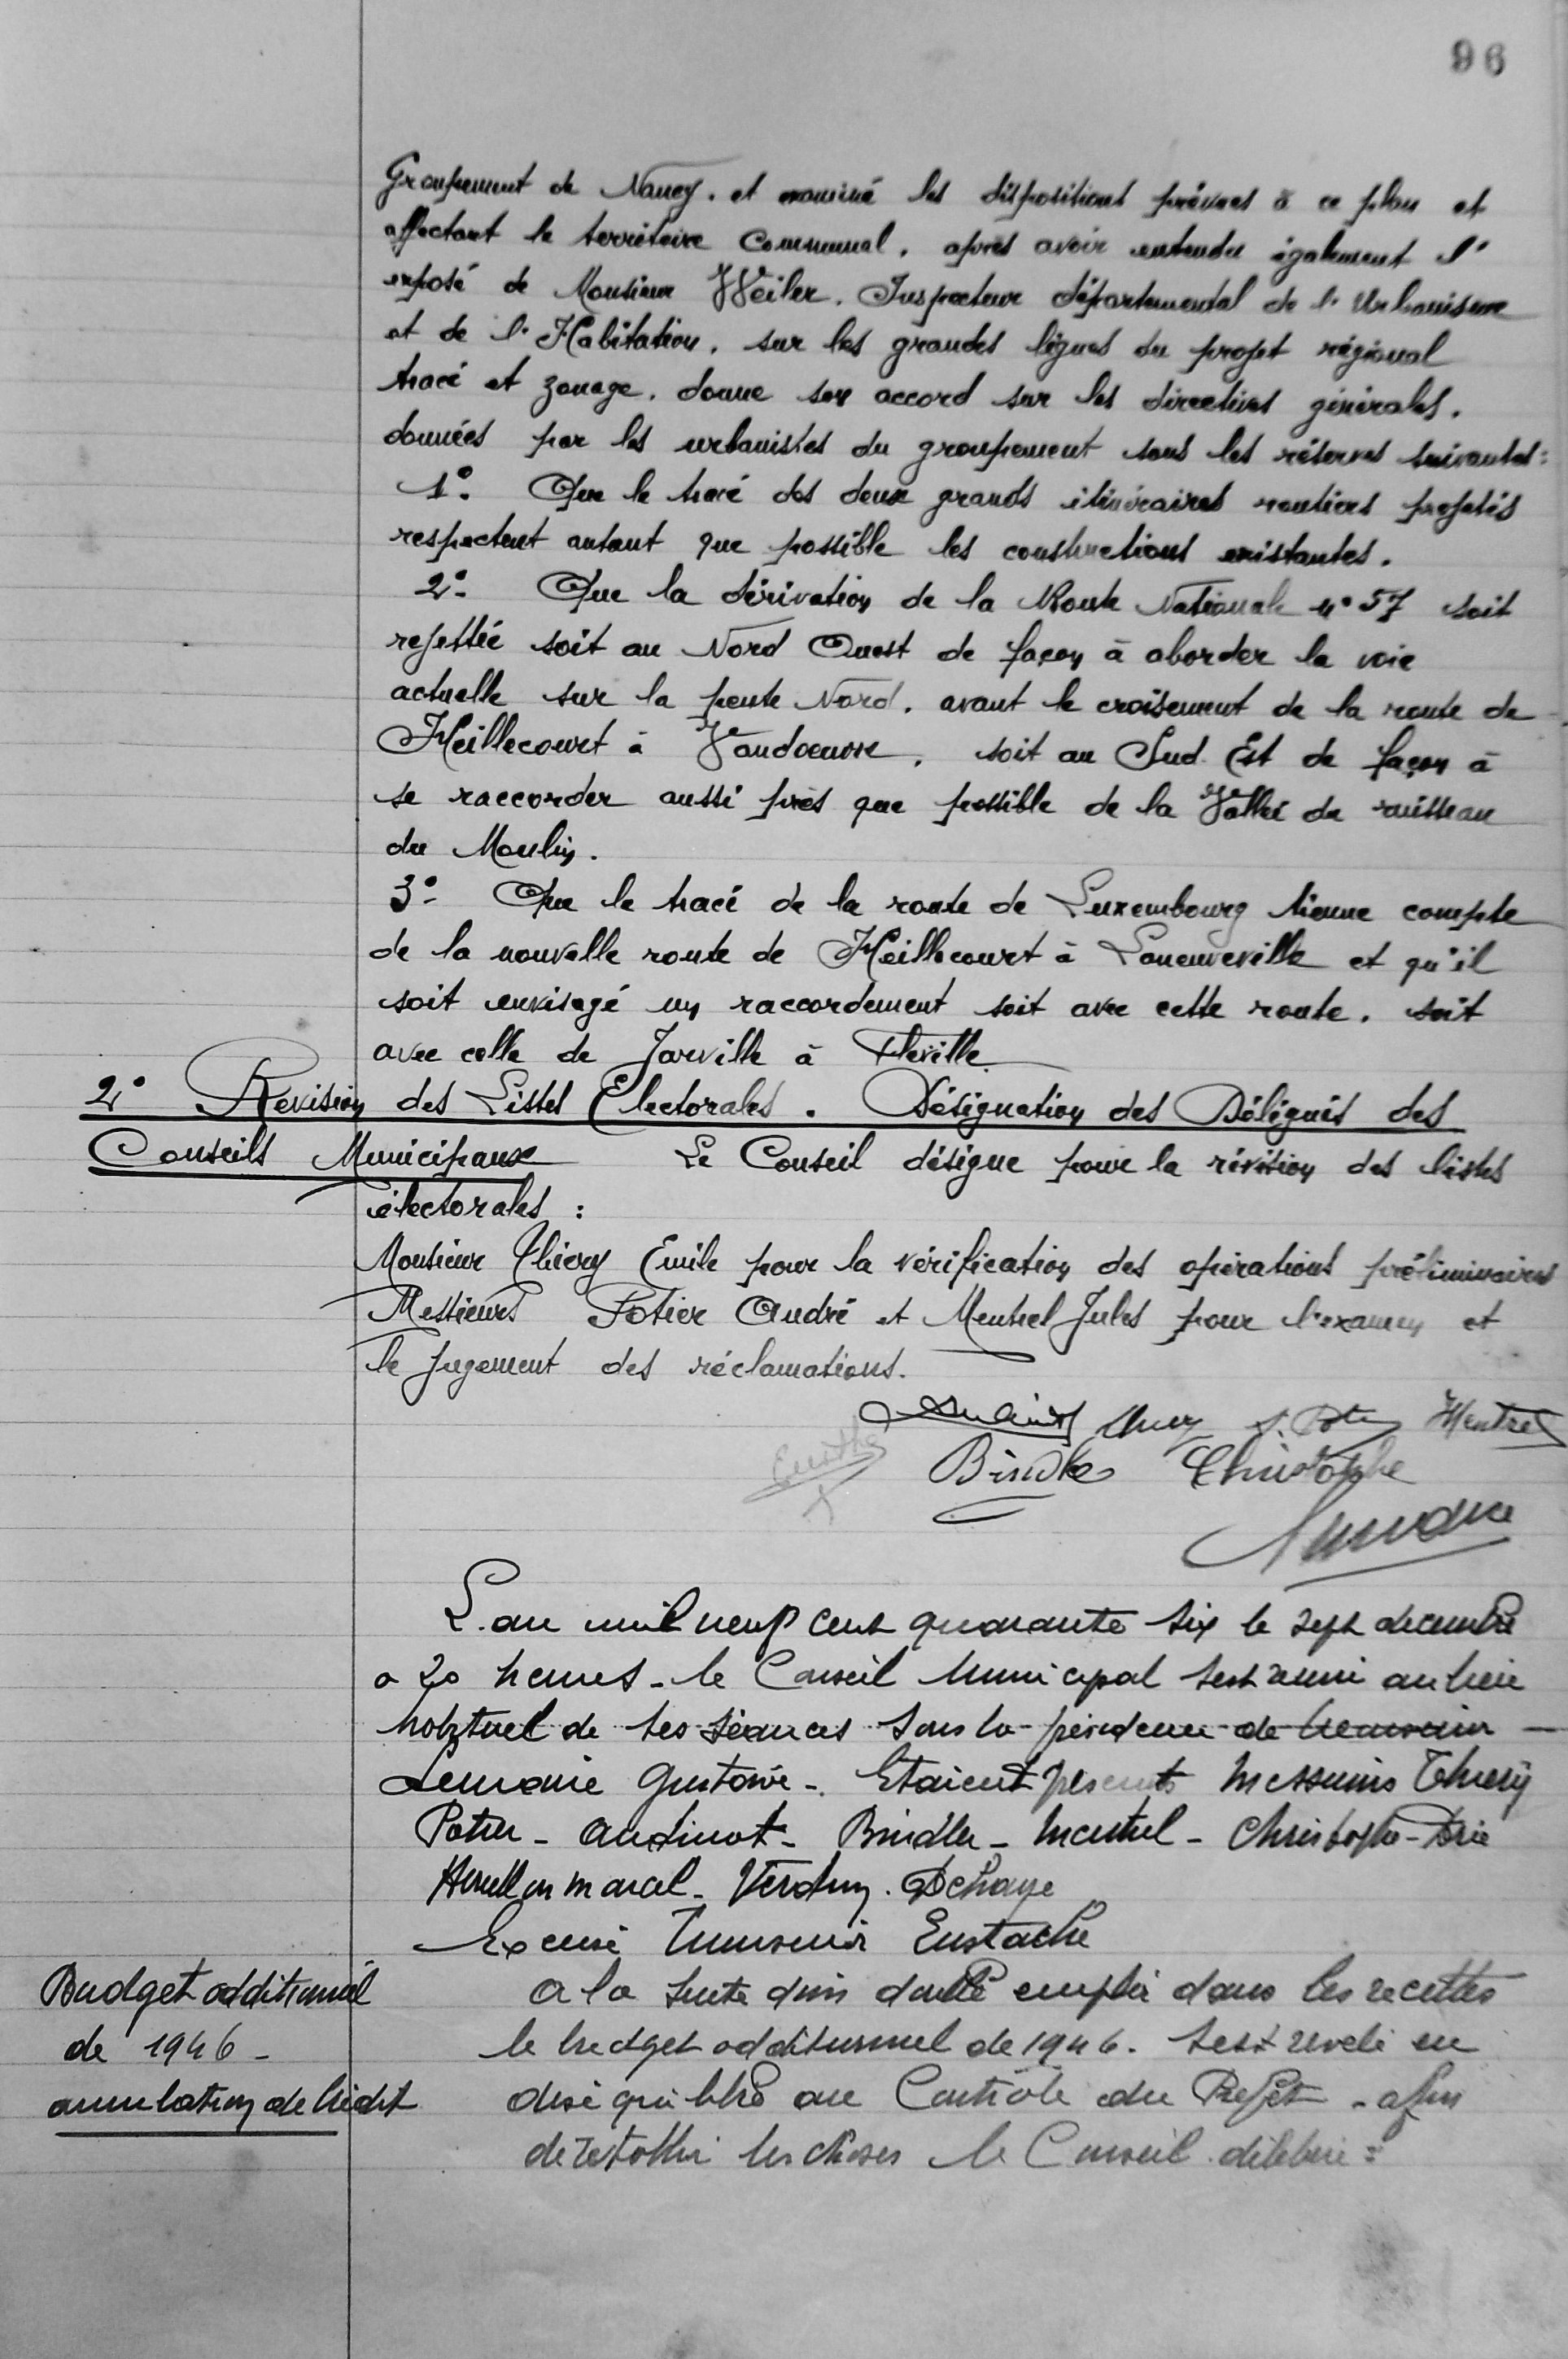 96
Groupement de Nancy. et examiné les dispositions prévues à ce plan et
affectant le territoire Communal. après avoir entendu également l'
exposé de Monsieur Weiler. Inspecteur départemental de l'Urbanisme
et de l'Habitation. sur les grandes lignes du projet régional
tracé et zonage. donne son accord sur les directives générales.
données par les urbanistes du groupement sous les réserves suivantes:
1°. Que le tracé des deux grands itinéraires routiers projetés
respectent autant que possible les constructions existantes.
2°- Que la dérivation de la Route Nationale n° 57 soit
rejettée soit au Nord Ouest de façon à aborder la voie
actuelle sur la pente Nord. avant le croisement de la route de
Heillecourt à Vandoeuvre. soit au Sud Est de façon à
se raccorder aussi près que possible de la Vallée du ruisseau
du Moulin.
3°- Que le tracé de la route de Luxembourg tienne compte
de la nouvelle route de Heillecourt à Laneuveville et qu'il
soit envisagé un raccordement soit avec cette route. soit
avec celle de Jarville à Fléville
2° Revision des Listes Electorales. Désignation des Délégués des
Conseils Municipaux Le Conseil désigne pour la révision des listes
électorales :
Monsieur Thiery Emile pour la vérification des opérations préliminaires
Messieurs Potier André et Mentrel Jules pour l'examen et
le jugement des réclamations.
A. Potier Mentrel
Bindler Christophe
L'an mil neuf cent quarante six le sept decembre
a 20 heures - le Conseil Municipal sest réuni au lieu
habituel de ses séances sous la présidence de Monsieur
Lemoine Gustave - Etaient présents Messieurs Thiery
Potier - Audinot - Bindler - Mentrel - Christophe -
Marcel - Verdun - Dehaye
Excusé Monsieur Eustache
Budget additionnel
de 1946 -
annulation de crédit
A la suite d'un double emploi dans les recettes
le budget additionnel de 1946. sest révélé en
déséquilibre au Contrôle du Préfet - afin
de rétablir les choses le Conseil délibère :